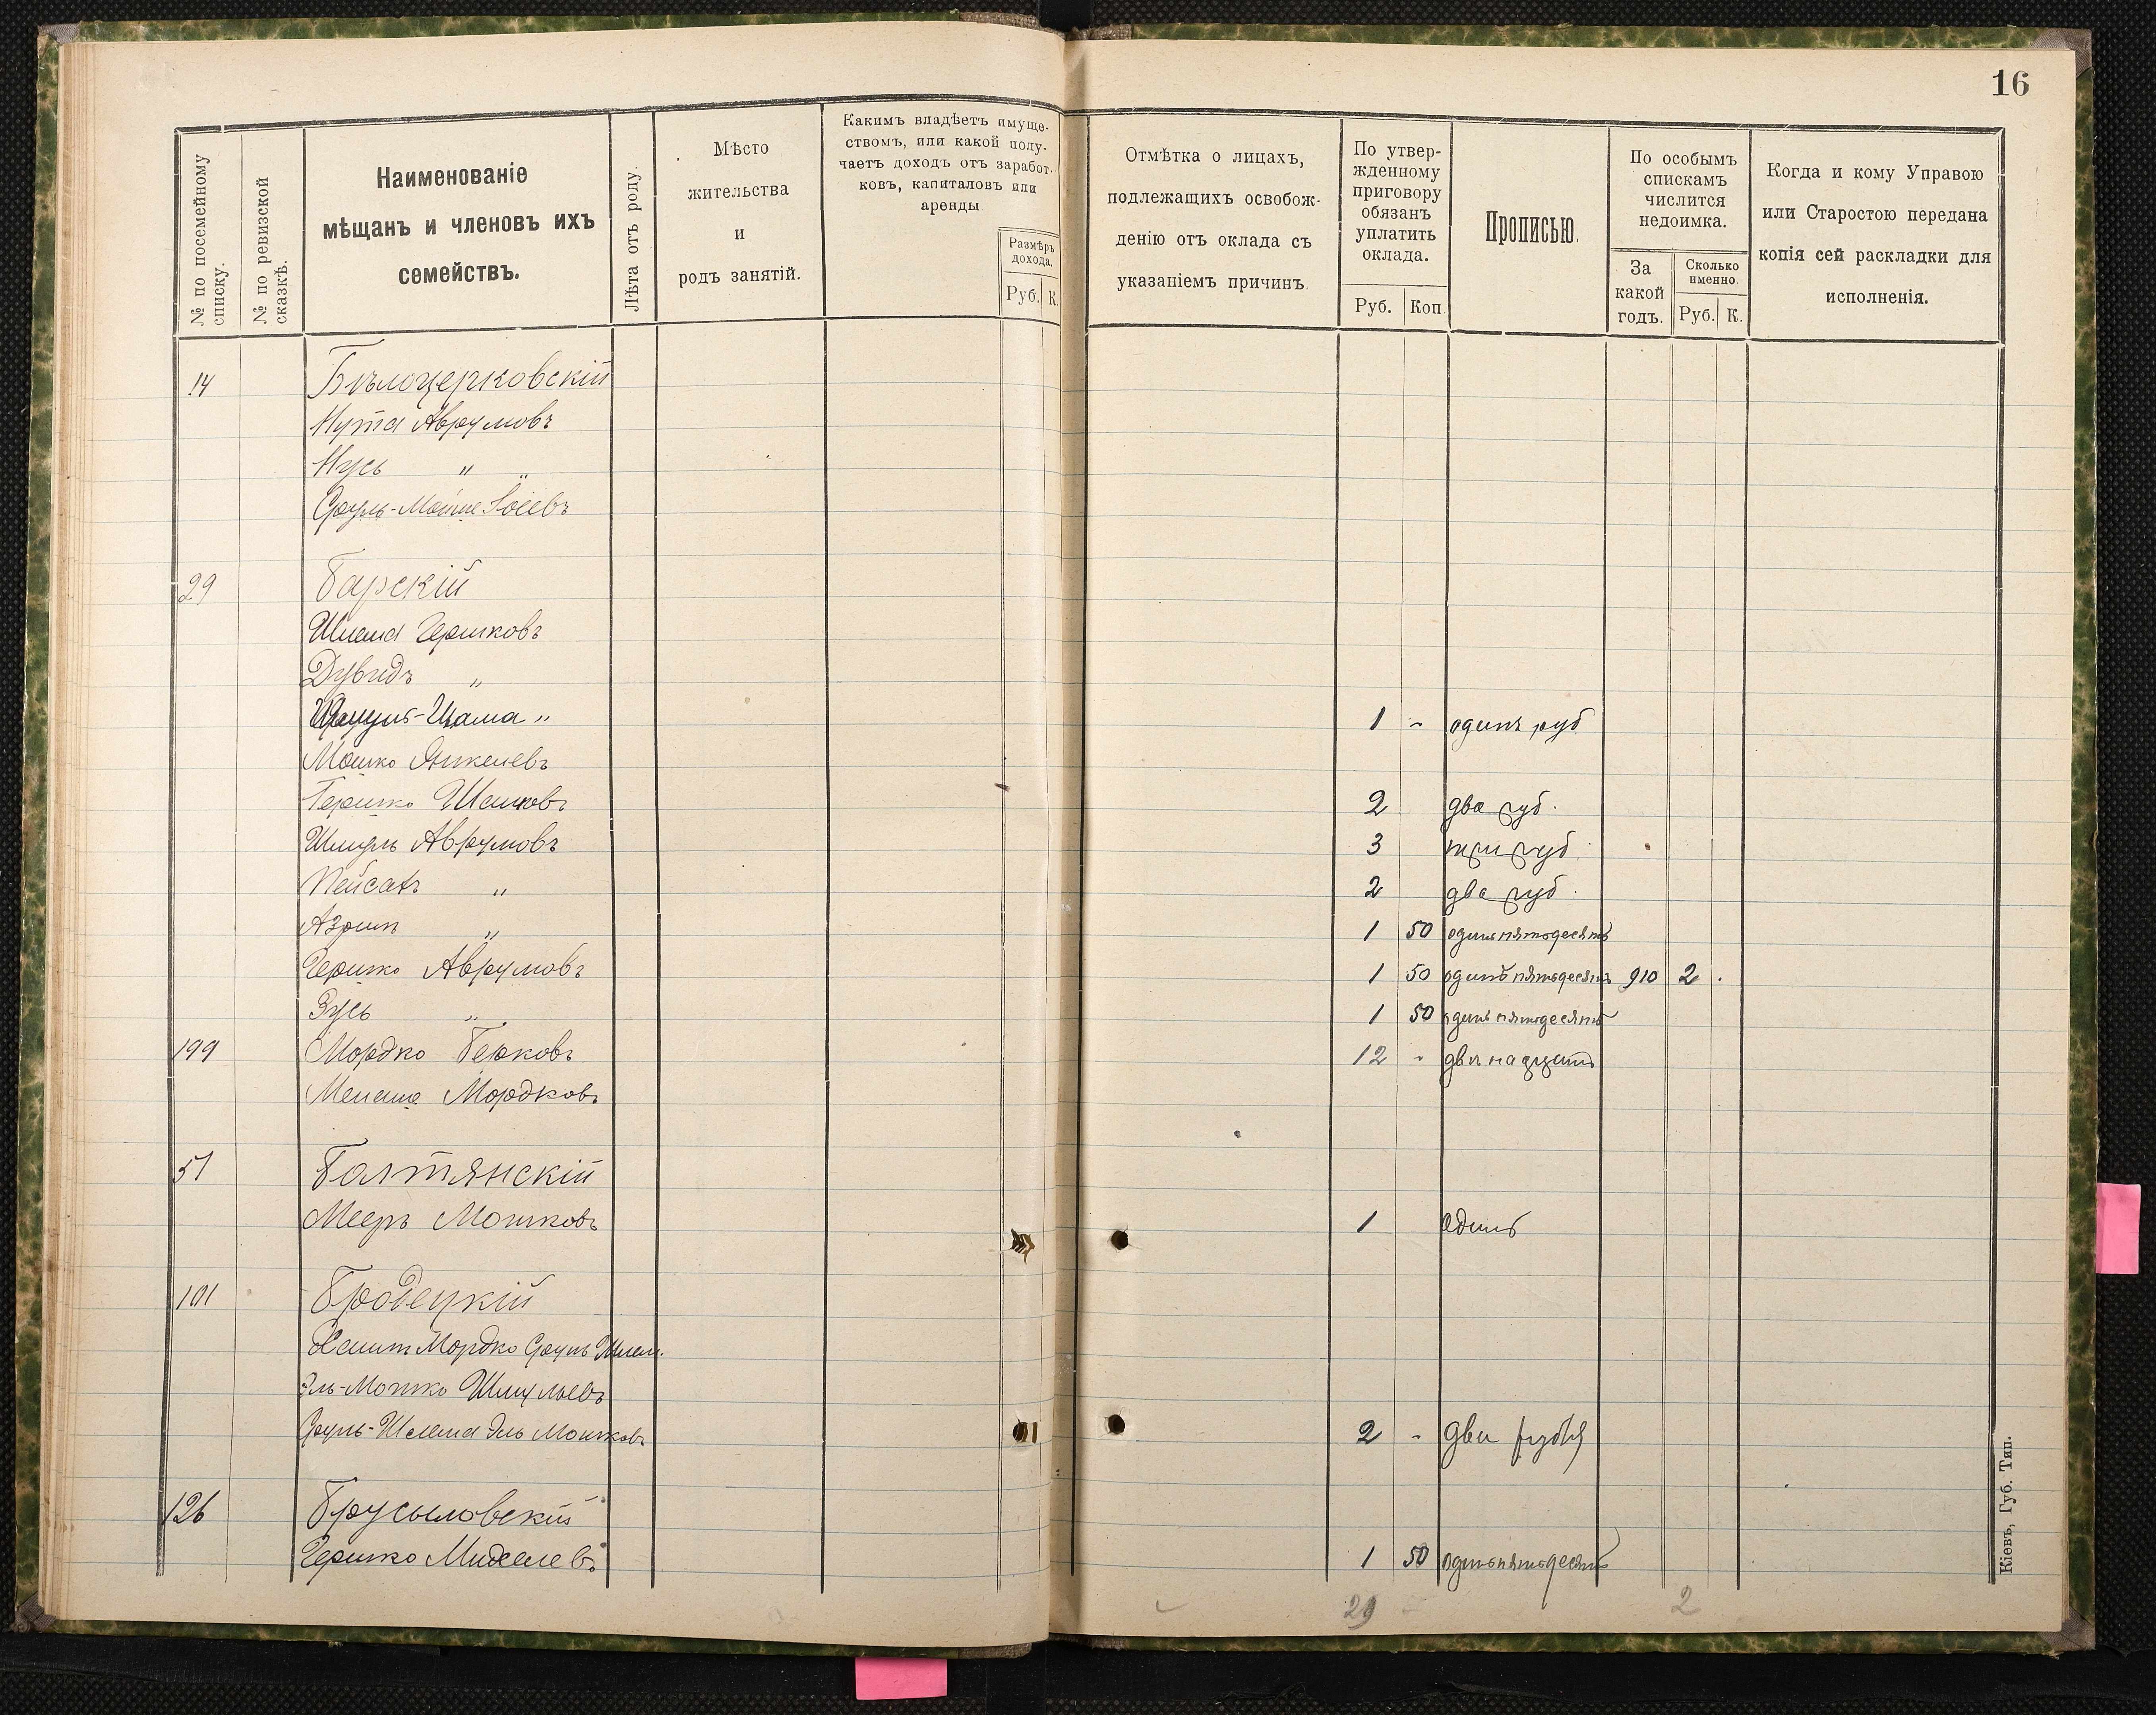 16
№ по посемейному списку.
№ по ревизской сказкѣ.
Наименованіе
мѣщанъ и членовъ ихъ
семействъ.
Лѣта отъ роду.
Мѣсто
жительства
и
родъ занятій.
Какимъ владѣетъ имуще-
ствомъ, или какой полу-
чаетъ доходъ отъ заработ-
ковъ, капиталовъ или
аренды
Размѣръ
дохода.
Руб. К.
Отмѣтка о лицахъ,
подлежащихъ освобож-
денію отъ оклада съ
указаніемъ причинъ.
По утвер-
жденному
приговору
обязанъ
уплатить
оклада.
Руб. Коп.
Прописью.
По особымъ
спискамъ
числится
недоимка.
За
какой
годъ.
Сколько
именно.
Руб. К.
Когда и кому Управою
или Старостою передана
копія сей раскладки для
исполненія.
14 Бѣлоцерковскій
Нута Аврумовъ
Нусь "
Сруль-Мойше Іосевъ
29 Барскій
Шлема Гершковъ
Дувидъ "
-Шама " 1 - одинъ руб
Мошко Янкелевъ
Гершко 2 два руб.
Шмуль Аврумовъ 3 три руб.
Пейсахъ " 2 два руб.
Азриль " 1 50 одинъ пятьдесятъ
Гершко Аврумовъ 1 50 одинъ пятьдесятъ 910 2 .
Зусь " 1 50 одинъ пятьдесятъ
199 Мордко Берковъ 12 - двѣнадцать
Менаше Мордковъ
51 Балтянскій
Мееръ Мошковъ 1 одинъ
101 Бродецкій
Мордко Сруль Шлем.
Эль-Мошко Шмульевъ
Сруль-Шлема Эль Мошковъ 2 - два рубля
126 Брусиловскій
Гершко Михелевъ 1 50 одинъ пятьдесятъ
29 2
Кіевъ, Губ. Тип.